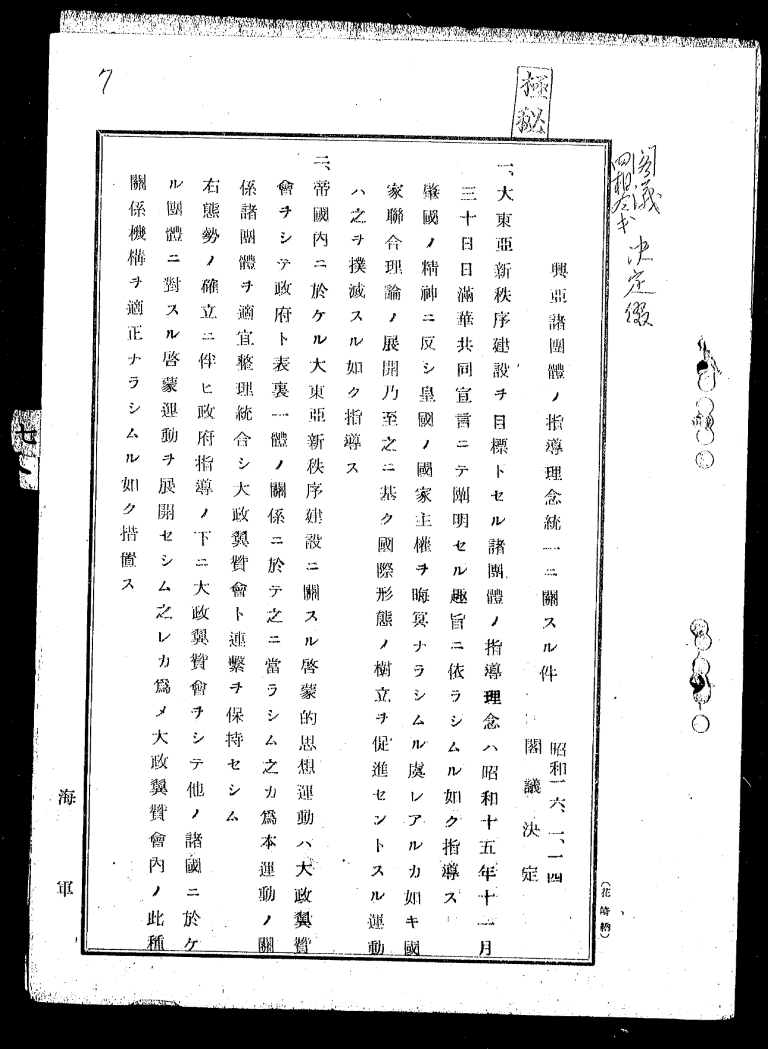 7
極秘
閣議
四相会議 決定綴
興亞諸團體ノ指導理念統一ニ關スル件
昭和一六、一、一四
閣議決定
一、大東亞新秩序建設ヲ目標トセル諸團體ノ指導理念ハ昭和十五年十一月
三十日日滿華共同宣言ニテ闡明セル趣旨ニ依ラシムル如ク指導ス
肇國ノ精神ニ反シ皇國ノ國家主權ヲ晦冥ナラシムル虞レアルカ如キ國
家聯合理論ノ展開乃至之ニ基ク國際形態ノ樹立ヲ促進セントスル運動
ハ之ヲ撲滅スル如ク指導ス
二、帝國内ニ於ケル大東亞新秩序建設ニ關スル啓蒙的思想運動ハ大政翼贊
會ヲシテ政府ト表裏一體ノ關係ニ於テ之ニ當ラシム之カ爲本運動ノ關
係諸團體ヲ適宜整理統合シ大政翼贊會ト連繫ヲ保持セシム
右態勢ノ確立ニ伴ヒ政府指導ノ下ニ大政翼贊會ヲシテ他ノ諸國ニ於ケ
ル團體ニ對スル啓蒙運動ヲ展開セシム之レカ爲メ大政翼贊會内ノ此種
關係機構ヲ適正ナラシムル如ク措置ス
海軍
七